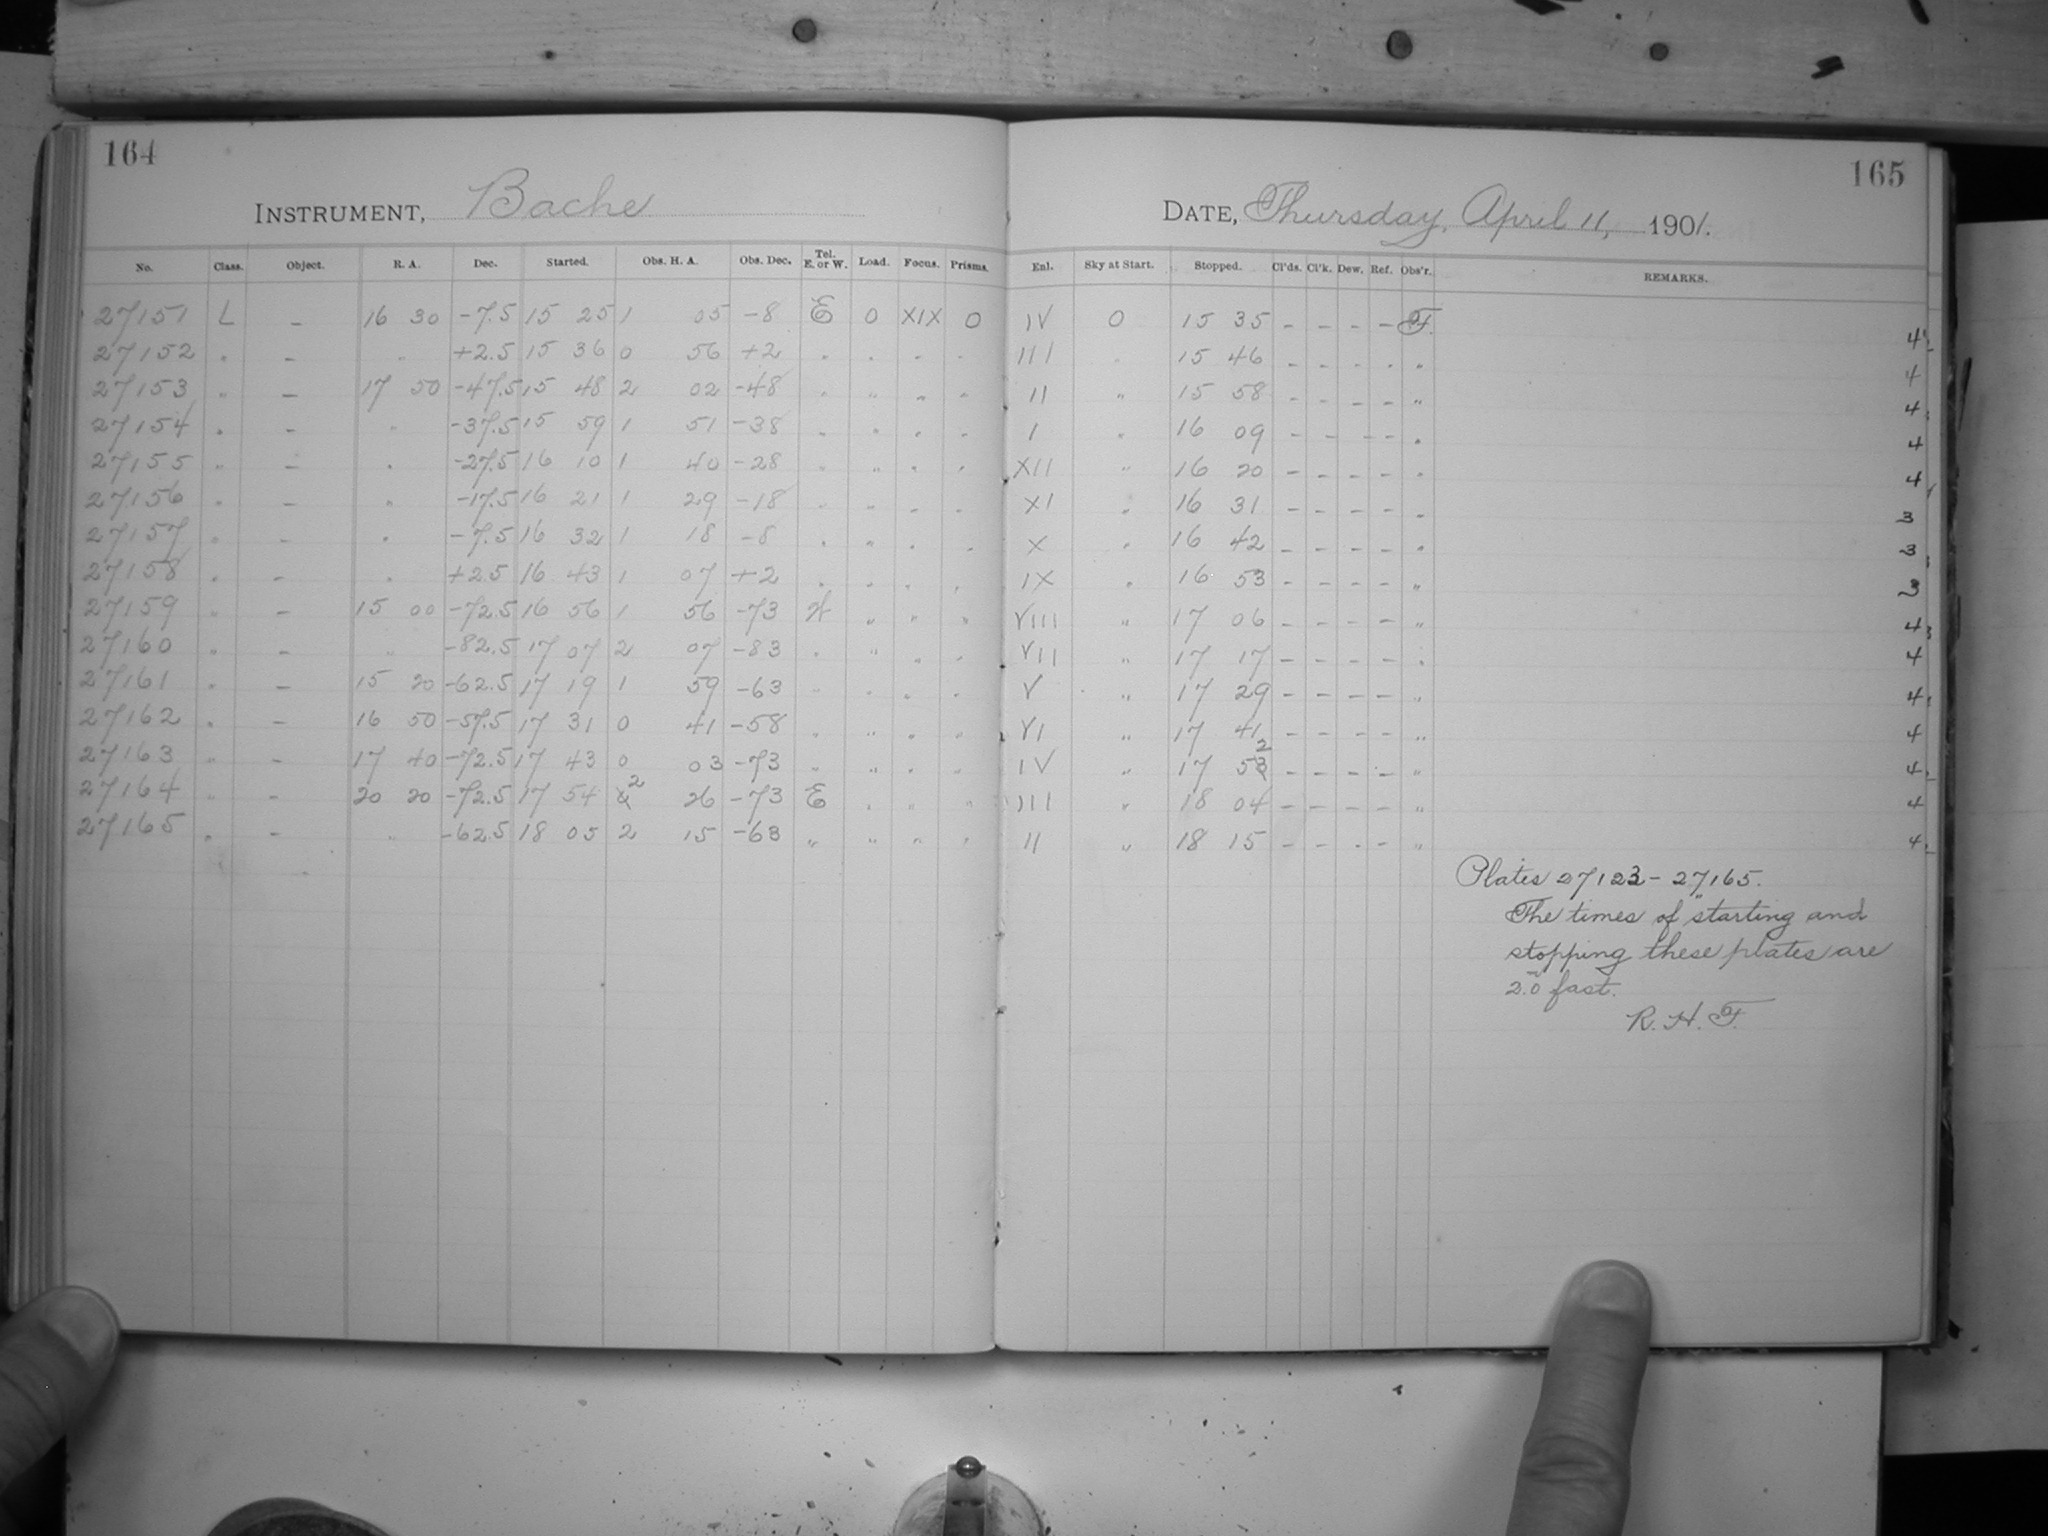 164
165
INSTRUMENT, Bache
DATE, Thursday, April 11, 1901.
No. Class. Object. R. A. Dec. Started. Obs. H. A. Obs. Dec. Tel. E. or W. Load. Focus. Prisms. Enl. Sky at Start. Stopped. Cl'ds. Cl'k. Dew. Ref. Obs'r. REMARKS.
27151 L – 16 30 -7.5 15 25 1 05 -8 E 0 XIX 0 IV 0 15 35 – – – – F. 4
27152 " – " +2.5 15 36 0 56 +2 " " " " III " 15 46 – – – – " 4
27153 " – 17 50 -47.5 15 48 2 02 -48 " " " " II " 15 58 – – – – " 4
27154 " – " -37.5 15 59 1 51 -38 " " " " I " 16 09 – – – – " 4
27155 " – " -27.5 16 10 1 40 -28 " " " " XII " 16 20 – – – – " 4
27156 " – " -17.5 16 21 1 29 -18 " " " " XI " 16 31 – – – – " 3
27157 " – " -7.5 16 32 1 18 -8 " " " " X " 16 42 – – – – " 3
27158 " – " +2.5 16 43 1 07 +2 " " " " IX " 16 53 – – – – " 3
27159 " – 15 00 -72.5 16 56 1 56 -73 W " " " VIII " 17 06 – – – – " 4
27160 " – " -82.5 17 07 2 07 -83 " " " " VII " 17 17 – – – – " 4
27161 " – 15 20 -62.5 17 19 1 59 -63 " " " " V " 17 29 – – – – " 4
27162 " – 16 50 -57.5 17 31 0 41 -58 " " " " VI " 17 41 – – – – " 4
27163 " – 17 40 -72.5 17 43 0 03 -73 " " " " IV " 17 52 – – – – " 4
27164 " – 20 20 -72.5 17 54 2 26 -73 E " " " III " 18 04 – – – – " 4
27165 " – " -62.5 18 05 2 15 -63 " " " " II " 18 15 – – – – " 4
Plates 27123 - 27165.
The times of starting and
stopping these plates are
2.0 fast.
R. H. F.